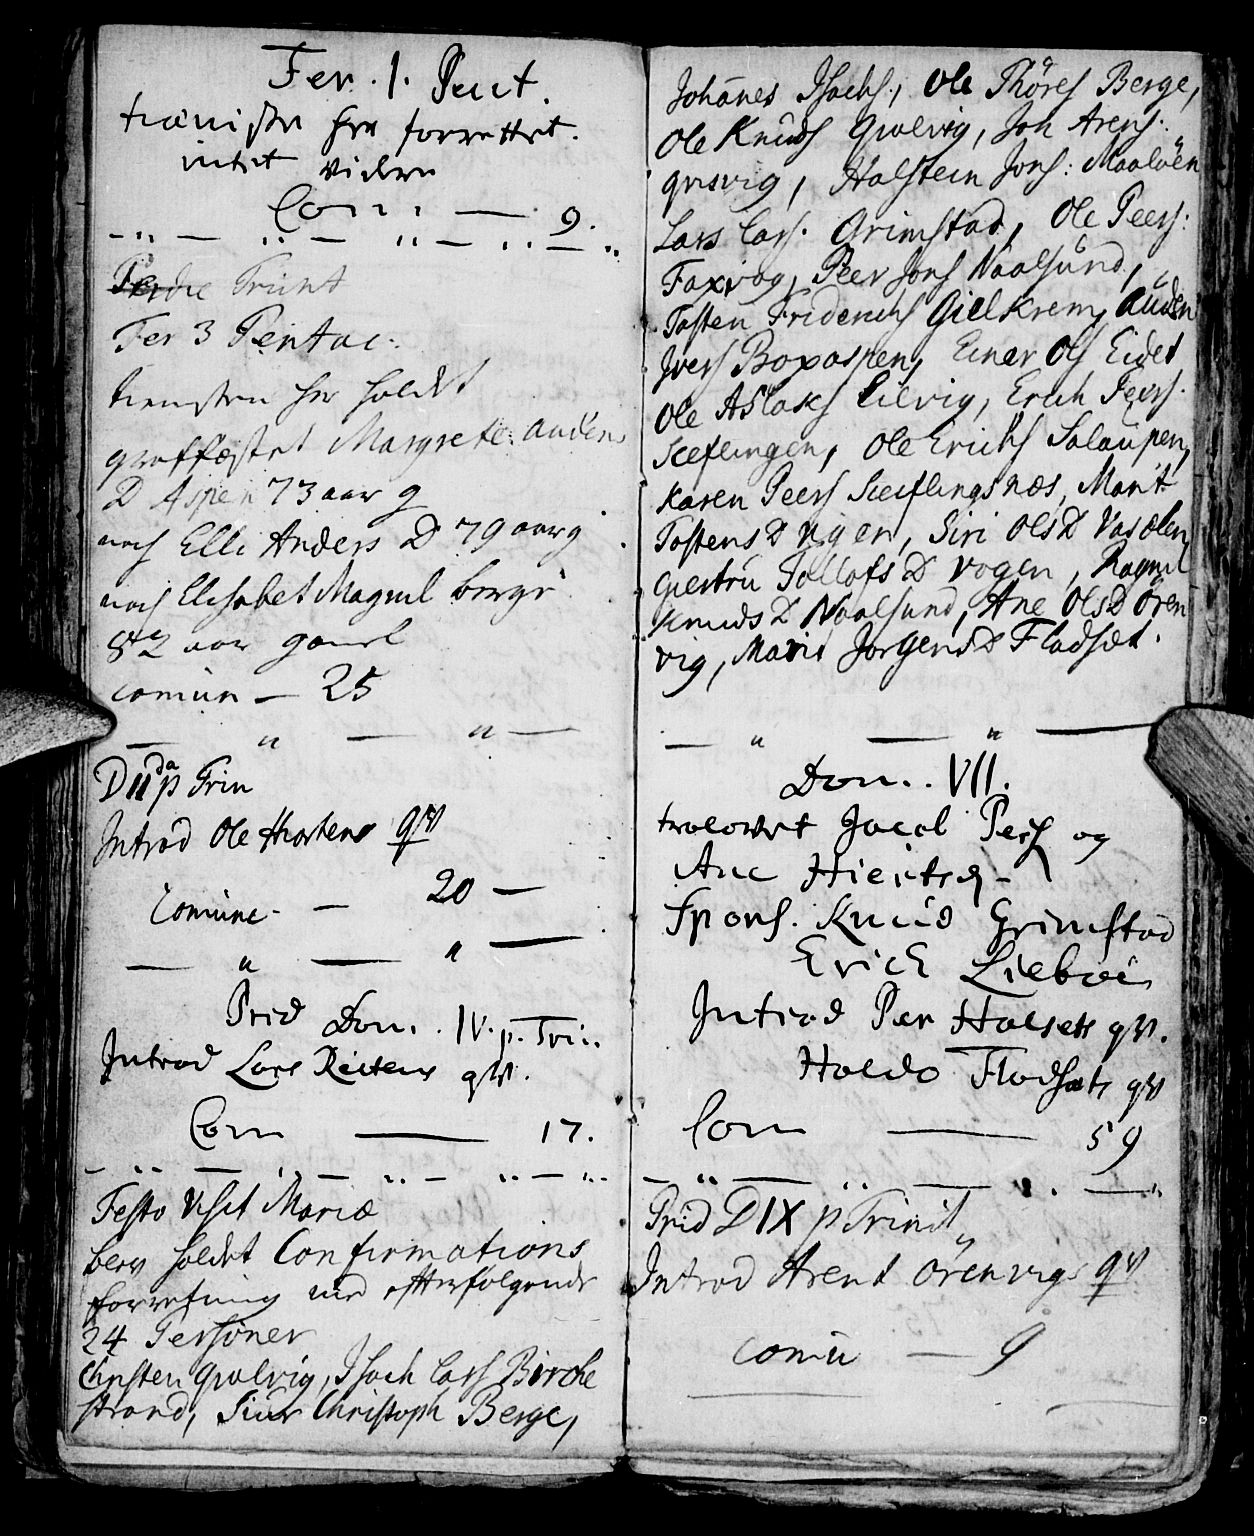 Fer. 1. Pent.
tienisten her forrettet.
intet videre
Com: — 9.
Feriae Trinit
Fer 3 Pentac:
tienesten her holdet
graffæstet Margrete Anders
D Aspen 73 aar g
noch Elli Anders D 79 aar g
noch Elisabet Magnil berge
82 aar gaml
comun — 25
D II da p Trin
Introd Ole Hostens qv
Comune — 20 —
Prid Dom. IV. p. Trin.
Introd Lars Reitens qv.
Com — 17.
Festo Visit Mariæ
blev holdet Confirmations
forretning med efterfølgende
24 Personer
Christen Qvalvig, Isach Lars Birche
strand, Siur Christoph Berge,
Johanes Isachs., Ole Thores Berge,
Ole Knuds Qvalvig, Jon Arens.
qvisvig, Halstein Jons: Maalöen
Lars Lars. Grimstad, Ole Peers:
Foxvog, Peer Jons Naalsund,
Tosten Friderichs Gielkrem, Auden
Ivers Boxaspen, Einer Ols Eidet
Ole Aslaks Lilvig, Erich Peers.
Sceflingen, Ole Erichs Solaupen,
Karen Peers Sceflingsnæs, Marit
Tostens D Vigen, Siri Ols D Vasölen
Giertru Tollofs D Vogen, Ragnil
Knuds D Naalsund, Ane Ols D Ören
vig, Marit Jorgens D Fladsæt.
Dom. VII.
trolovet Jacob Pers og
Ane Hiertsd.
Spons. Knud Grimstad
Erick Lieböe
Introd Per Halsets qv.
Haldo Flodsæts qv
Com — 59
Prid D IX p Trinit
Introd Arent Örenvigs qv
comu — 9